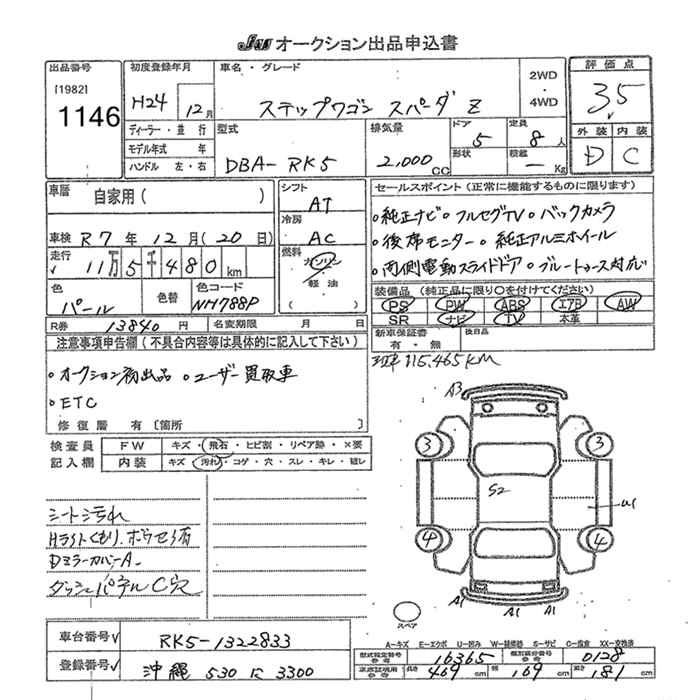 JU オークション出品申込書
出品番号
[1982]
1146
初度登録年月
H24 12月
ディーラー・並行
モデル年式 年
ハンドル 左・右
車名・グレード
ステップワゴン スパーダ Z
2WD
・
4WD
評価点
3.5
外装 内装
D C
型式
DBA-RK5
排気量
2,000 cc
ドア
5
形状
定員
8人
積載
— Kg
車歴
自家用( )
車検 R7年12月(20日)
走行 11万5千480km
色
パール
色替
色コード
NH788P
シフト
AT
冷房
AC
燃料
ガソリン
・
軽油
( )
セールスポイント(正常に機能するものに限ります)
○純正ナビ○フルセグTV○バックカメラ
○後席モニター○純正アルミホイール
○両側電動スライドドア○ブルートゥース対応
装備品(純正品に限り○を付けてください)
PS PW ABS エアB AW
SR ナビ TV 本革
新車保証書
有・無
後日品
R券 13840円
名変期限 月 日
現車115,465KM
注意事項申告欄(不具合内容等は具体的に記入して下さい)
○オークション初出品 ○ユーザー買取車
○ETC
修復歴 有〔箇所 〕
検査員
記入欄
FW キズ・飛石・ヒビ割・リペア跡・X要
内装 キズ・汚れ・コゲ・穴・スレ・キレ・破レ
シート汚れ
Hライトくもり.
DミラーカバーA
C穴
A3
3 3
S2
U1
4 4
A1 A1 A1
スペア
A-キズ E-エクボ U-凹み W-補修跡 S-サビ C-腐食 XX-交換済
車台番号 RK5-1322833
登録番号 沖縄 530 に 3300
型式指定番号
参考
16365
類別区分番号
参考
0128
車庫証明用
参考
長さ 469cm 幅 169cm 高さ 181cm